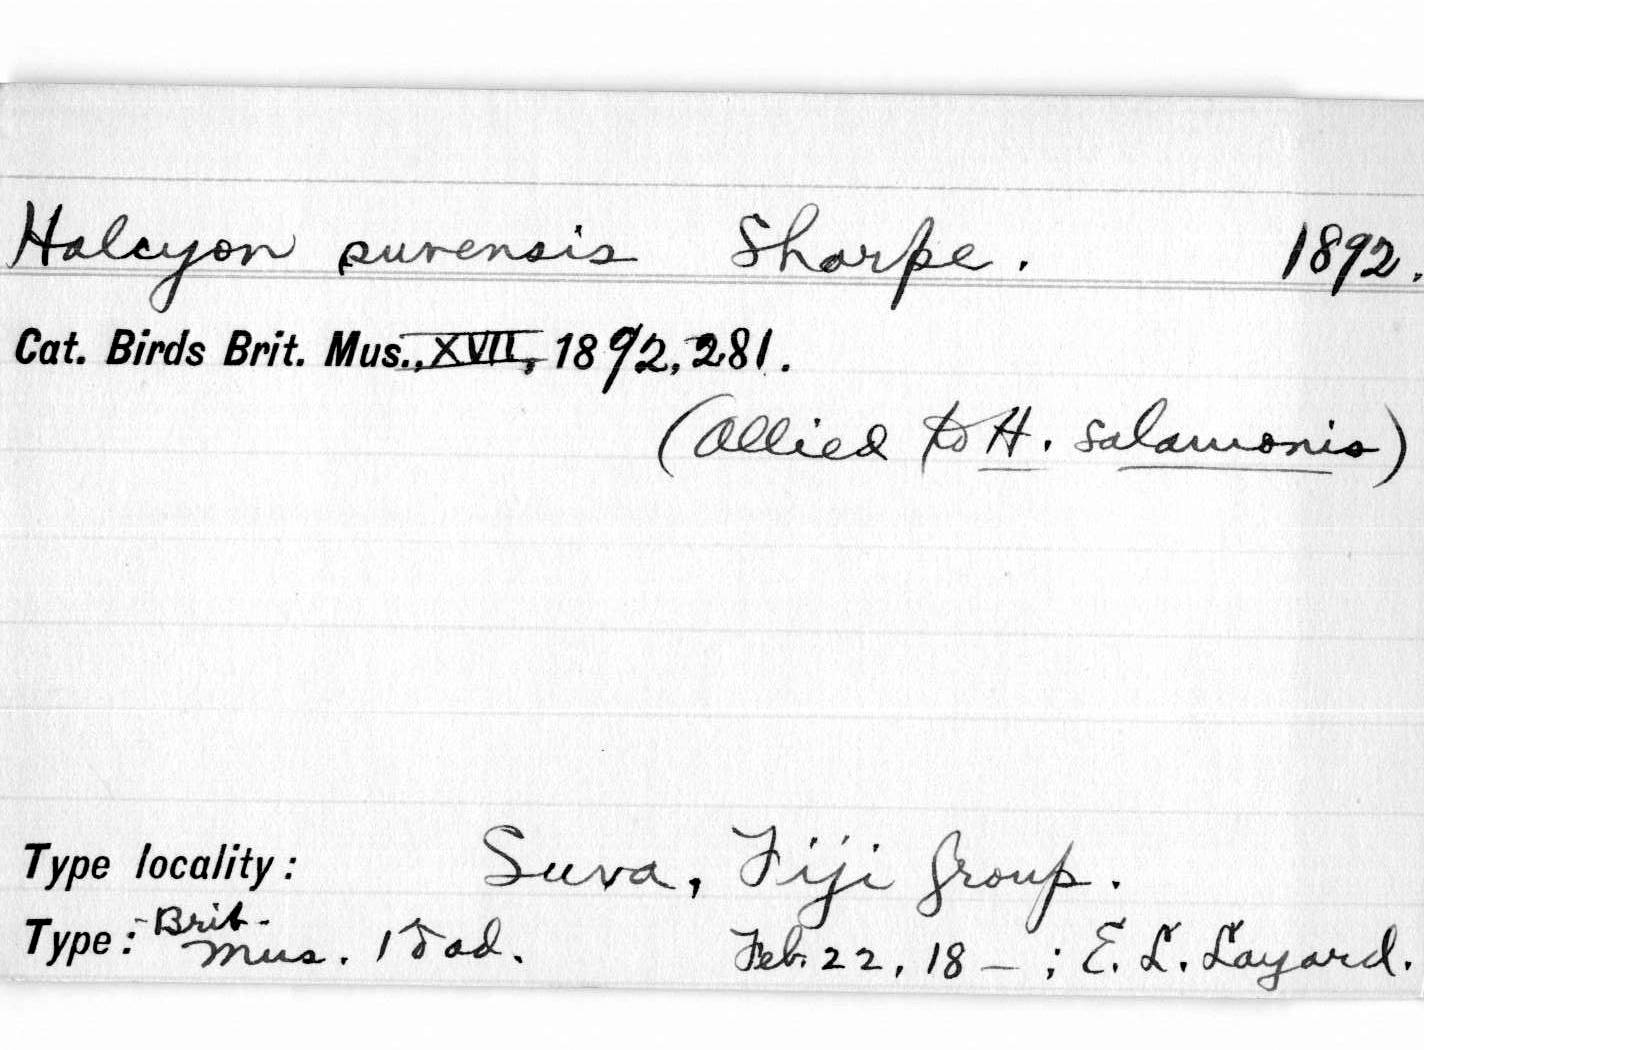 Halcyon suvensis Sharpe. 1892.
Cat. Birds Brit. Mus., XVII, 1892, 281.
(Allied to H. salamonis)
Type locality: Suva, Fiji Group.
Type: Brit. Mus. 1 ♂ ad. Feb. 22, 18 — ; E. L. Layard.